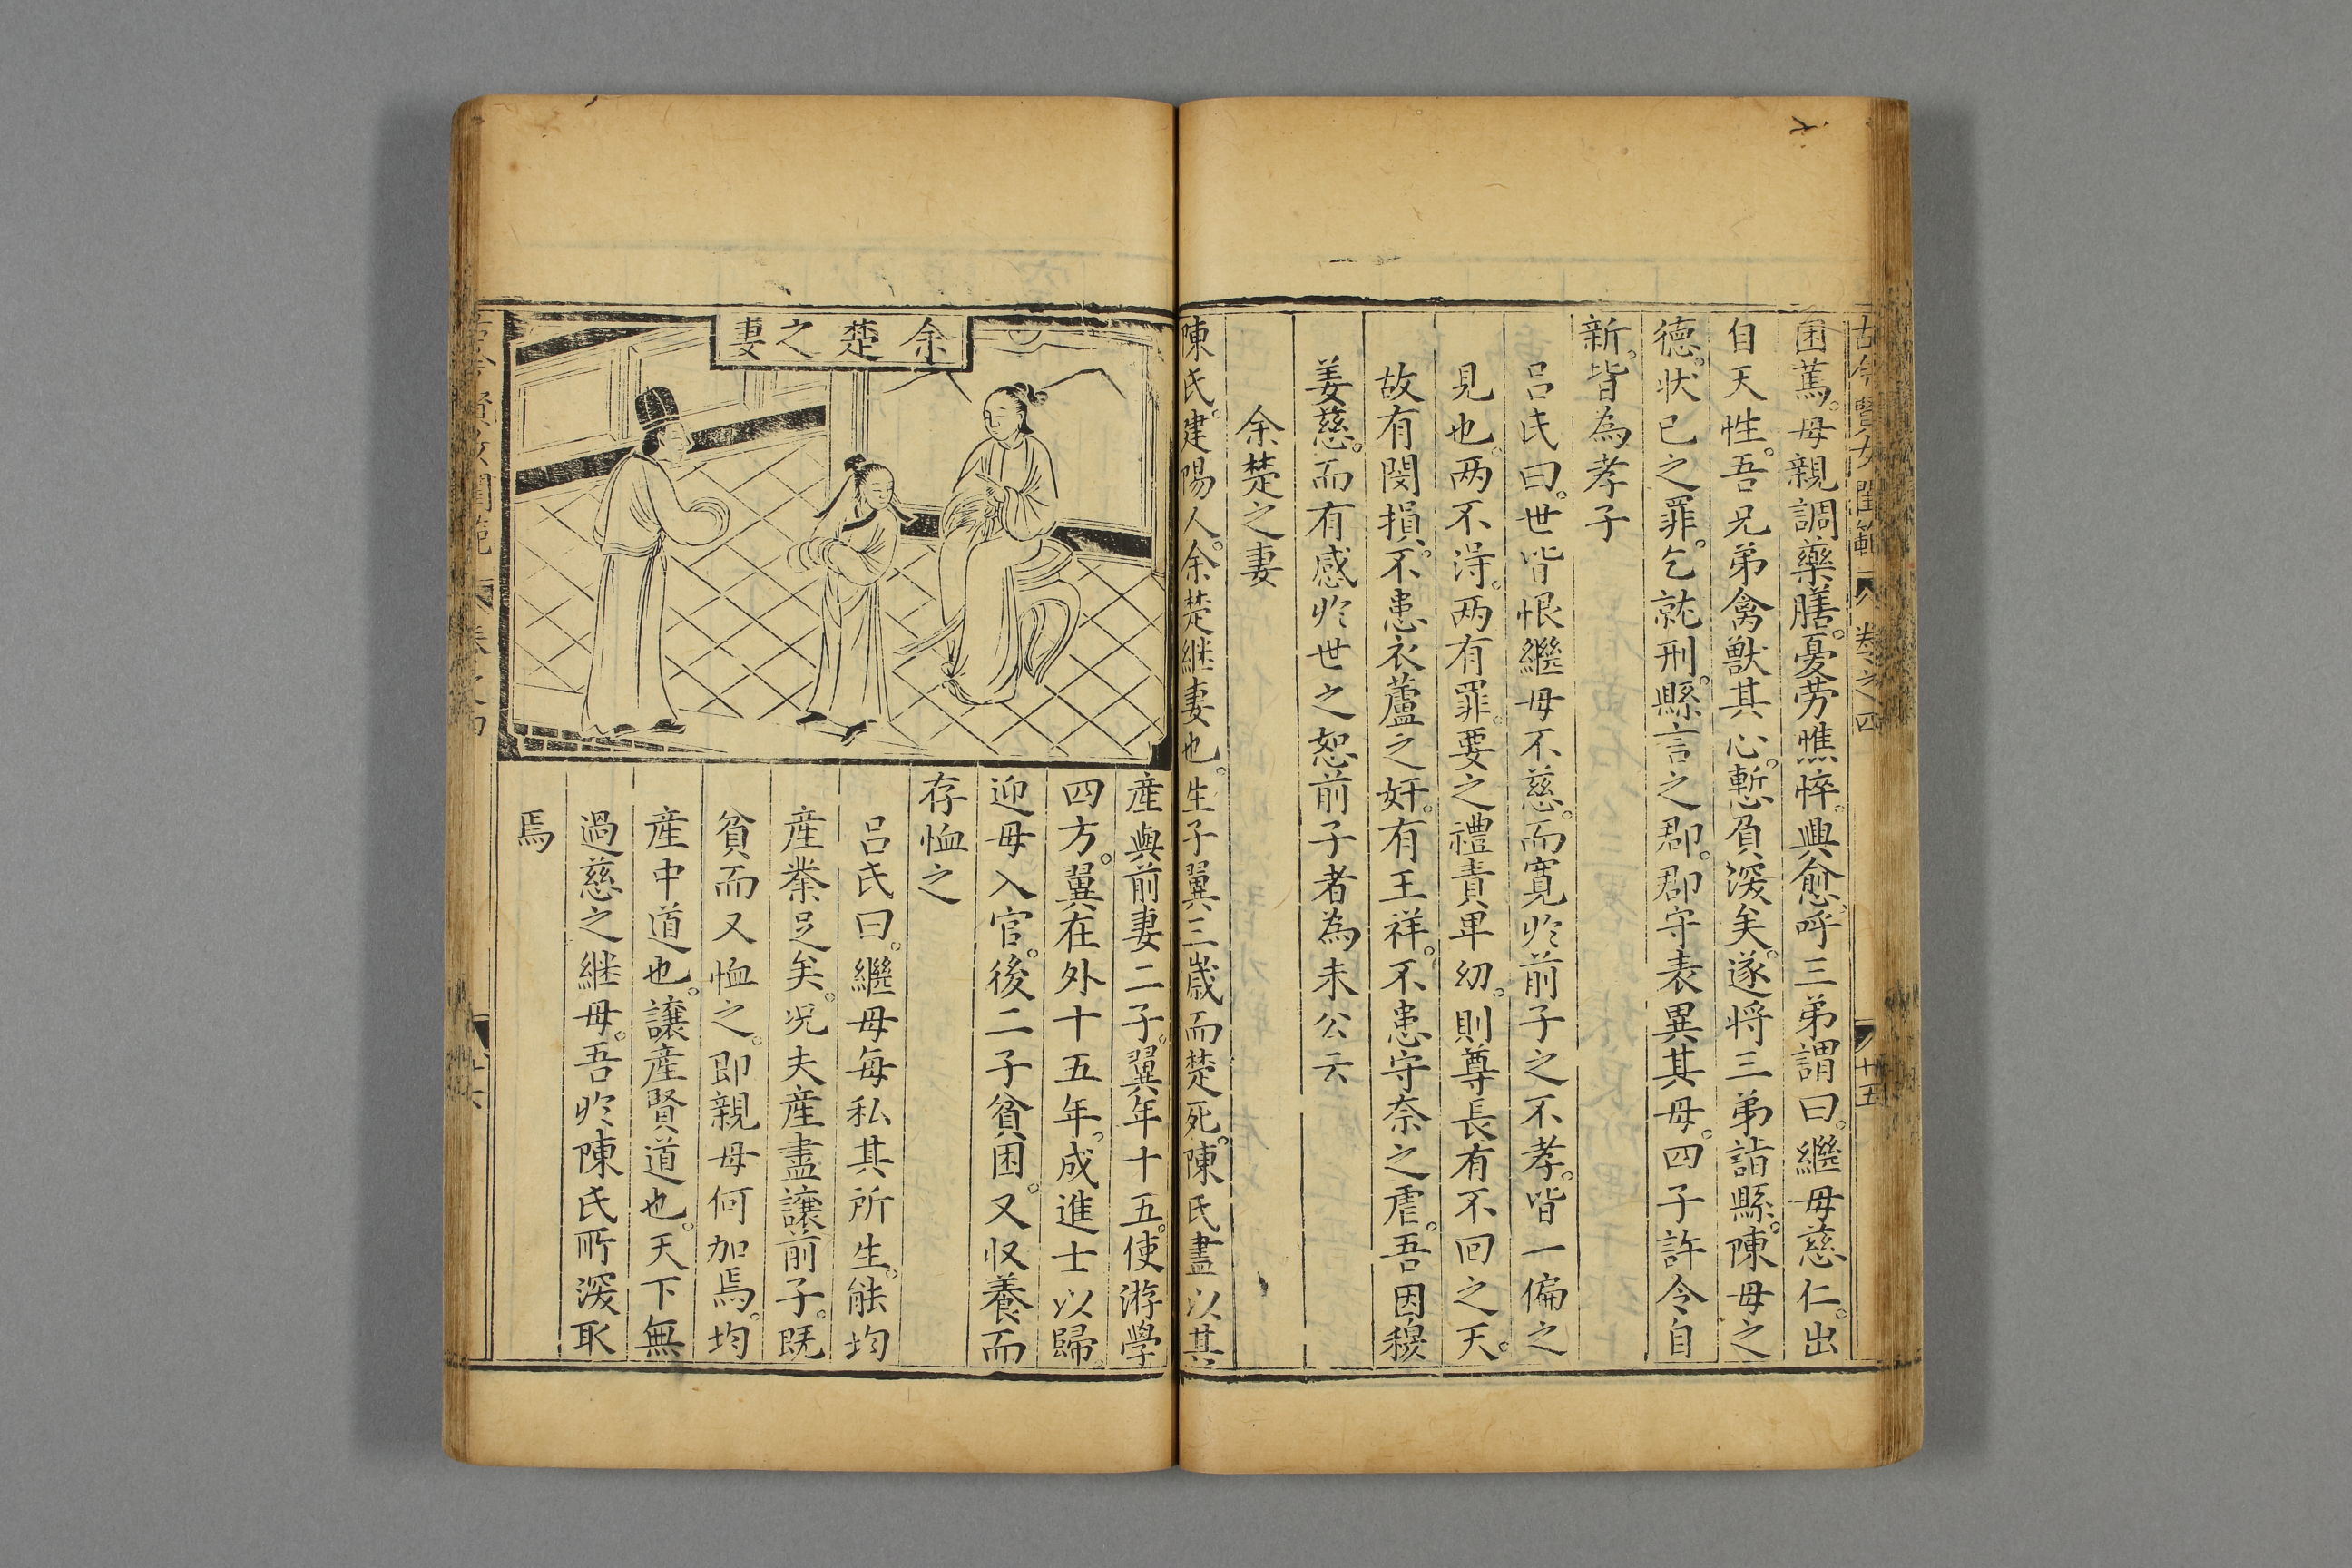 古今賢女閨範 卷之四 廿五
困篤。母親調藥膳。憂劳憔悴。興愈。呼三弟謂曰。繼母慈仁。出
自天性。吾兄弟禽獸其心。慙負深矣。遂将三弟詣縣。陳母之
德。状已之罪。乞就刑。縣言之郡。郡守表異其母。四子許令自
新。皆為孝子
吕氏曰。世皆恨繼母不慈。而寬扵前子之不孝。皆一偏之
見也。两不淂。两有罪。要之禮責卑幼。則尊長有不囘之天。
故有閔損。不患衣蘆之奸。有王祥。不患守奈之虐。吾因穆
姜慈。而有感扵世之恕前子者為未公云
余楚之妻
陳氏。建陽人。余楚継妻也。生子翼三歲而楚死。陳氏盡以其
余楚之妻
産與前妻二子。翼年十五。使游學
四方。翼在外十五年。成進士以歸。
迎母入官。後二子貧困。又収養而
存恤之
吕氏曰。繼母每私其所生。能均
産業足矣。况夫産盡讓前子。既
貧而又恤之。即親母何加焉。均
産中道也。讓産賢道也。天下無
過慈之継母。吾扵陳氏所深取
焉
卷之四